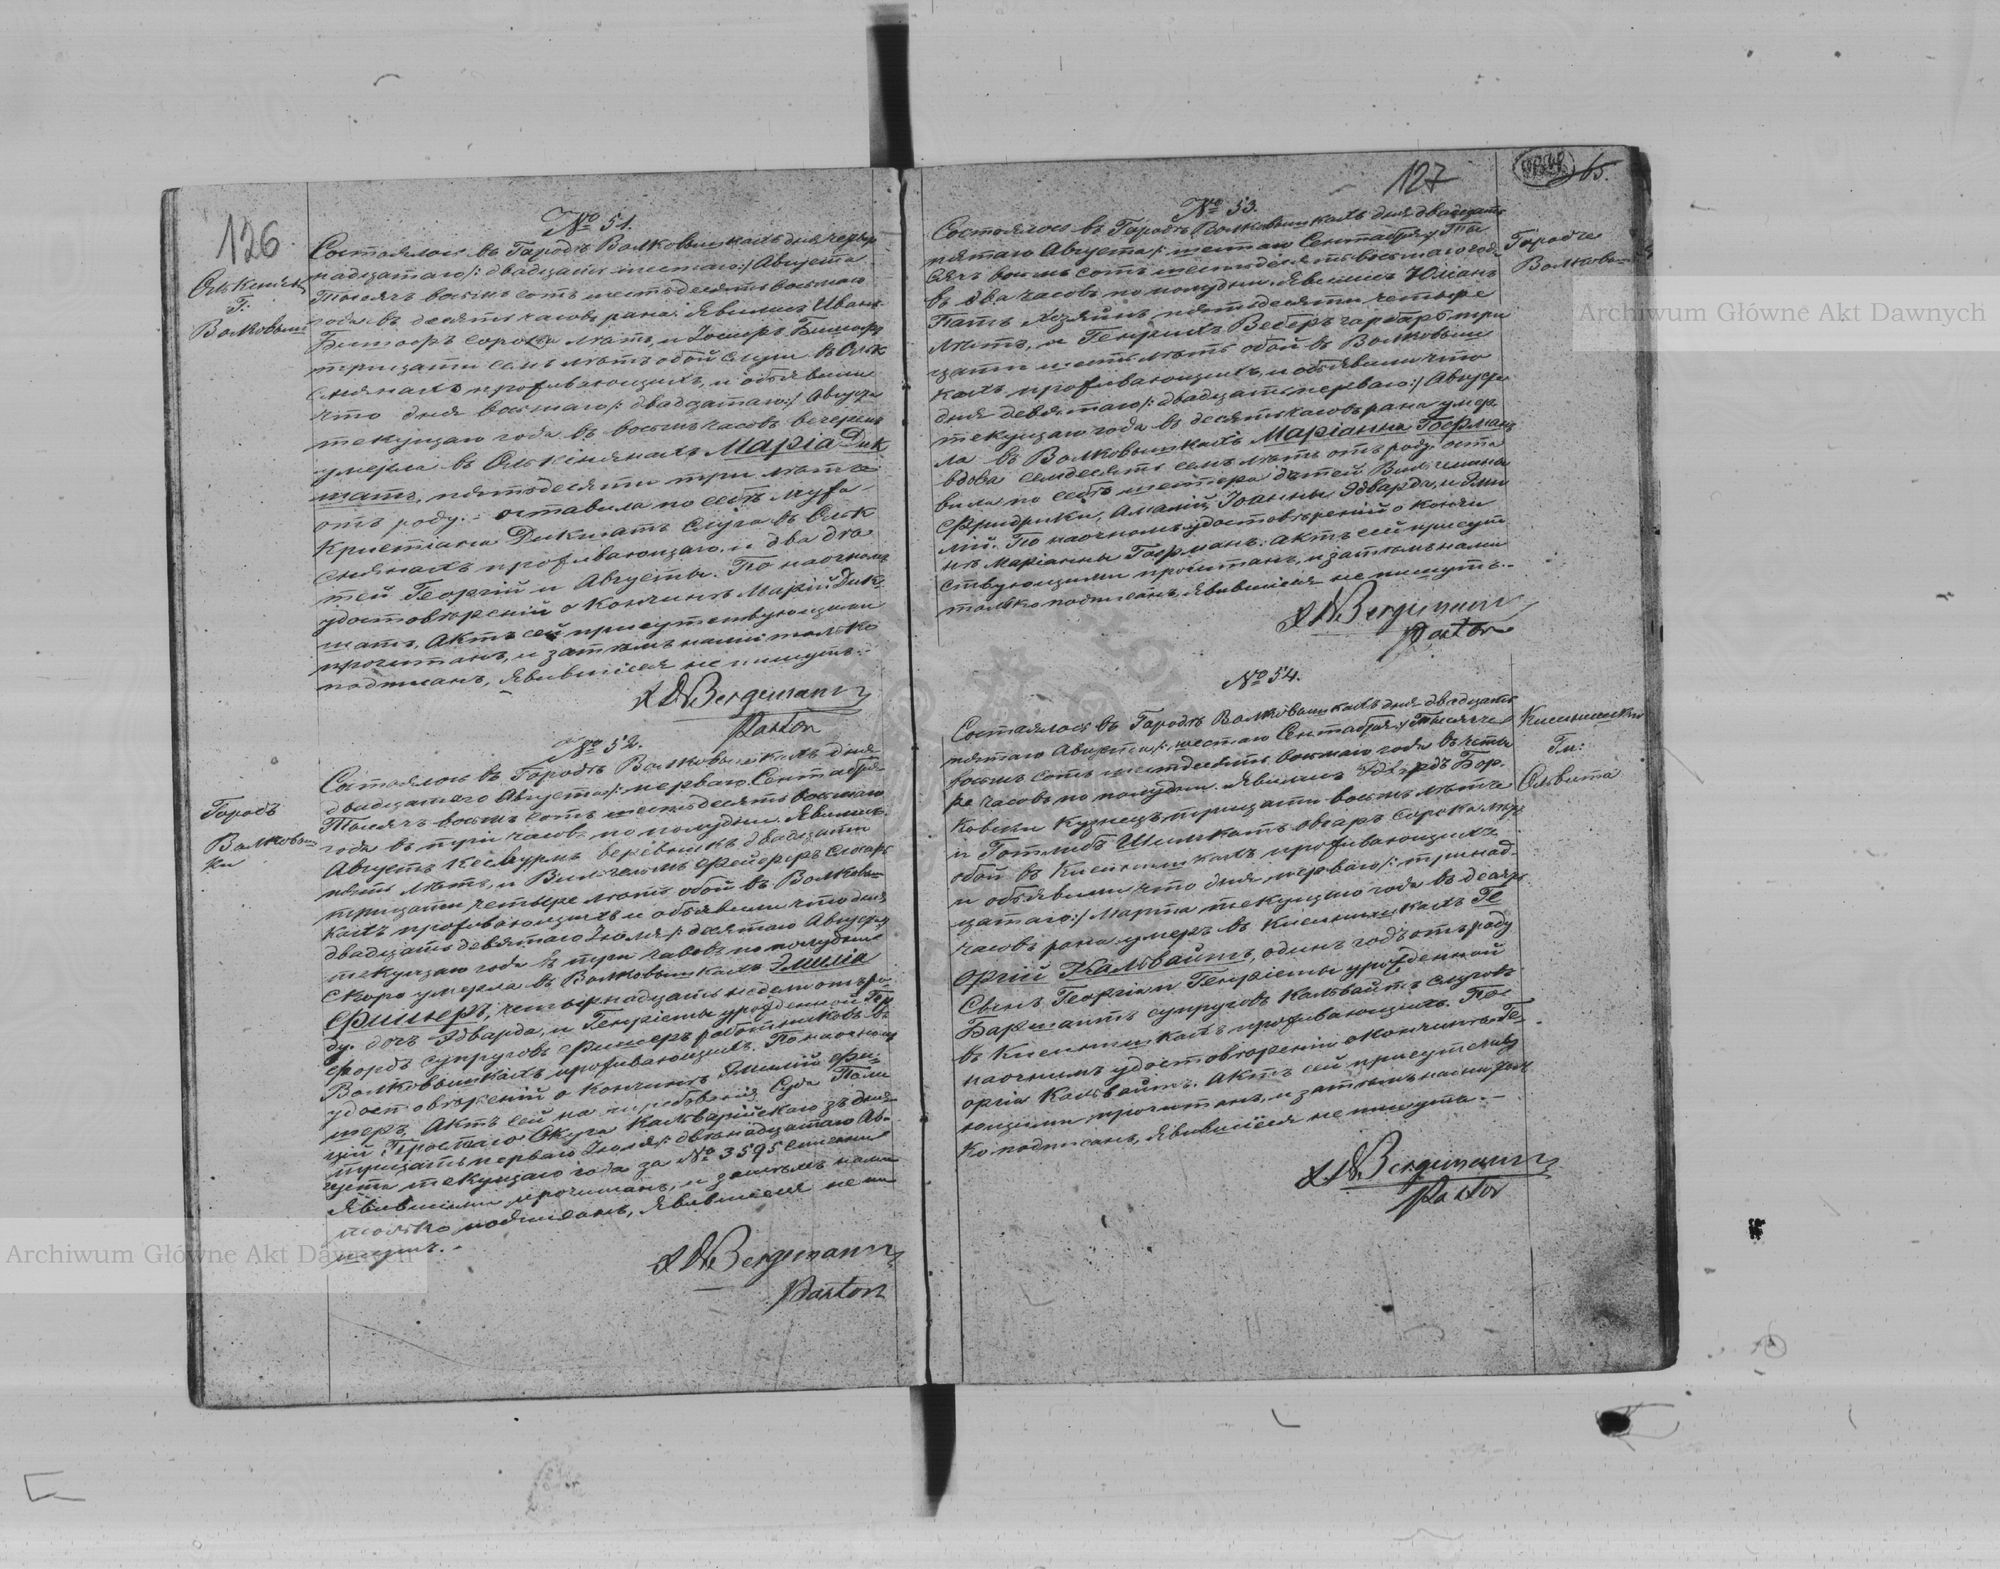 126
Олькеняны
Г:
Волковыш:
№ 51.
Состоялось въ Городѣ Волковышкахъ дня четыр
надцатаго /: двадцать шестаго :/ Августа
Тысяча восемь сотъ шестьдесятъ восьмаго
года въ десять часовъ рана. Явились Иванъ
Бишофъ сорока лѣтъ, и Іосифъ Бишофъ
тридцати семь лѣтъ обой слуги въ Ольк
сненахъ проживающихъ, и объявили
что дня восьмаго /: двадцатаго :/ Августа
текущаго года въ восемь часовъ вечеромъ
умерла въ Олькіняхъ Марія Дик
шатъ, пятьдесяти три лѣта
отъ роду. оставила по себѣ мужа
Кристіана Дикшатъ слуга въ Ольк
сненахъ проживающаго, и два дѣ
тей Георгій и Августы. По наочномъ
удостовѣреніи о кончинѣ Маріи Дик-
шатъ, Актъ сей присутствующими
прочитанъ, и затѣмъ нами только
подписанъ, Явившіеся не пишутъ.
Bergemann
Pastor
№ 52.
Городъ
Волковыш
ки
Состоялось въ Городѣ Волковышкахъ дня
двадцатаго Августа /: перваго Сентября
Тысяча восемь сотъ шестьдесятъ восьмаго
года въ три часовъ по полудни. Явились
Августъ двадцати
пять лѣтъ, и Вильгельмъ слесарь
тридцати четыре лѣтъ обой въ Волковы
кахъ проживающихъ и объявили что дня
двадцать девятаго Іюля /: десятаго Августа
текущаго года въ три часовъ по полудни
скоро умерла въ Волковышкахъ Эмилія
Фишеръ, четырнадцать недели отъ ро-
ду. дочь Эдварда, и Генріеты урожденной Гер
фордъ супруговъ Фишеръ работниковъ въ
Волковышкахъ проживающихъ. По наочномъ
удостовѣреніи о кончинѣ Эмиліи Фи-
шеръ, Актъ сей на требованія Суда Поли
ціи Простаго Окуга Кальварійскаго зъ дня
тридцать перваго Іюля /: двѣнадцатаго Ав-
густа текущаго года за № 3595
Явившими прочитанъ, и затѣмъ нами
только подписанъ, Явившіеся не пи
шутъ.
Bergemann
Pastor
127
65.
№ 53.
Городъ
Волковы
Состоялось въ Городѣ Волковышкахъ дня двадцать
пятаго Августа /: шестаго Сентября :/ Ты
сячъ восемь сотъ шестьдесятъ восьмаго года
въ два часовъ по полудни. Явились Юліанъ
Патъ хозяинъ пятьдесяти четыре
лѣтъ, и Генрихъ Веберъ гарбаръ три
цати шесть лѣтъ обой въ Волковыш
кахъ проживающихъ, и объявили что
дня девятаго /: двадцать перваго :/ Августа
текущаго года въ десять часовъ рана умер
ла въ Волковышкахъ Маріанна Гофманъ
вдова семдесятъ семь лѣтъ отъ роду, оста
вила по себѣ шестеро дѣтей Вильгельма
Фридрики, Амаліи, Іоанны, Эдварда, и Эми
ліи. По наочномъ удостовѣреніи о кончи
нѣ Маріанны Гофманъ. Актъ сей присут
ствующими прочитанъ, и затѣмъ нами
только подписанъ, Явившіеся не пишутъ.
Bergemann
Pastor
№ 54.
Кисинишки
Гм:
Ольвита
Состоялось въ Городѣ Волковышкахъ дня двадцать
пятаго Августа /: шестаго Сентября :/ Тысяча
восемь сотъ шестдесятъ восьмаго года въ четы
ре часовъ по полудни. Явились Эдвардъ Бор
ковски кузнецъ тридцати восемь лѣтъ
и Готлибъ Шимкатъ овчаръ сорока лѣтъ
обой въ Кисинишкахъ проживающихъ
и объявили что дня перваго /: тринад-
цатаго :/ Марта текущаго года въ десять
часовъ рана умеръ въ Кисинишкахъ Ге
оргій Кальвайтъ, одинъ годъ отъ роду
Сынъ Георгія и Генріеты урожденной
Баршатъ супруговъ Кальвайтъ слуговъ
въ Кисинишкахъ проживающихъ. По
наочнымъ удостовѣреніи о кончинѣ Ге
оргія Кальвайтъ. Актъ сей присутству
ющими прочитанъ, и затѣмъ нами толь
ко подписанъ, Явившіеся не пишутъ.
Bergemann
Pastor
Archiwum Główne Akt Dawnych
Archiwum Główne Akt Dawnych